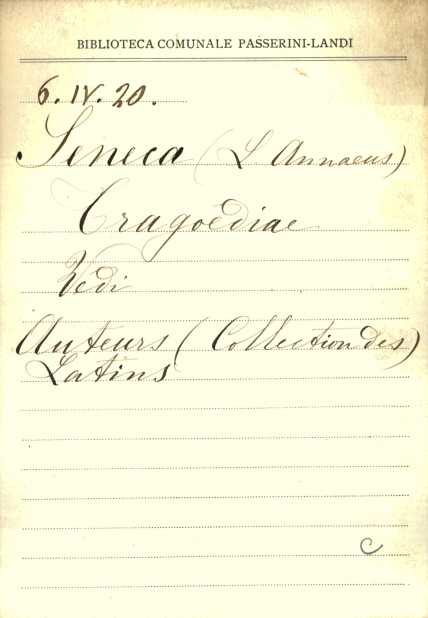 BIBLIOTECA COMUNALE PASSERINI-LANDI
6. IV. 20.
Seneca (L Annaeus)
Tragoediae
Vedi
Auteurs (Collection des)
Latins
C